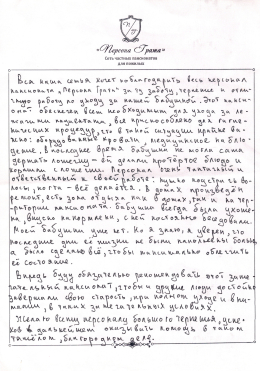 «Персона Грата»
Сеть частных пансионатов
для пожилых
Вся наша семья хочет поблагодарить весь персонал
пансионата „Персона Грата" за заботу, терпение и отли-
чную работу по уходу за нашей бабушкой. Этот пансио-
нат обеспечен всем необходимым для ухода за ле-
жачими пациентами, все приспособлено для гигие-
нических процедур, что в такой ситуации крайне ва-
жно: оборудованные кровати, медицинское на блю-
дение, в последнее время бабушка не могла сама
держать ложку – ей делали протёртое блюдо и
кормили с ложечки. Персонал очень тактичный и
ответственный в своей работе. Нужно подстричь во-
лосы, ногти – всё делается. В домах произведён
ремонт, есть зона отдыха как в домах, так и на тер-
ритории пансионата. Бабушка всегда была ухоже-
на, вкусно накормлена, с ней постоянно беседовали.
Моей бабушки уже нет. Но я знаю, я уверен, что
последние дни её жизни не были наполнены болью,
а было сделано всё, чтобы максимально облегчить
её состояние.
Впредь буду обязательно рекомендовать этот заме-
чательный пансионат, чтобы и другие люди достойно
завершали свою старость, при полном уходе и вни-
мании, в таких замечательных условиях.
Желаю всему персоналу большого терпения, успе-
хов в дальнейшем оказывать помощь в таком
тяжёлом, благородном деле.